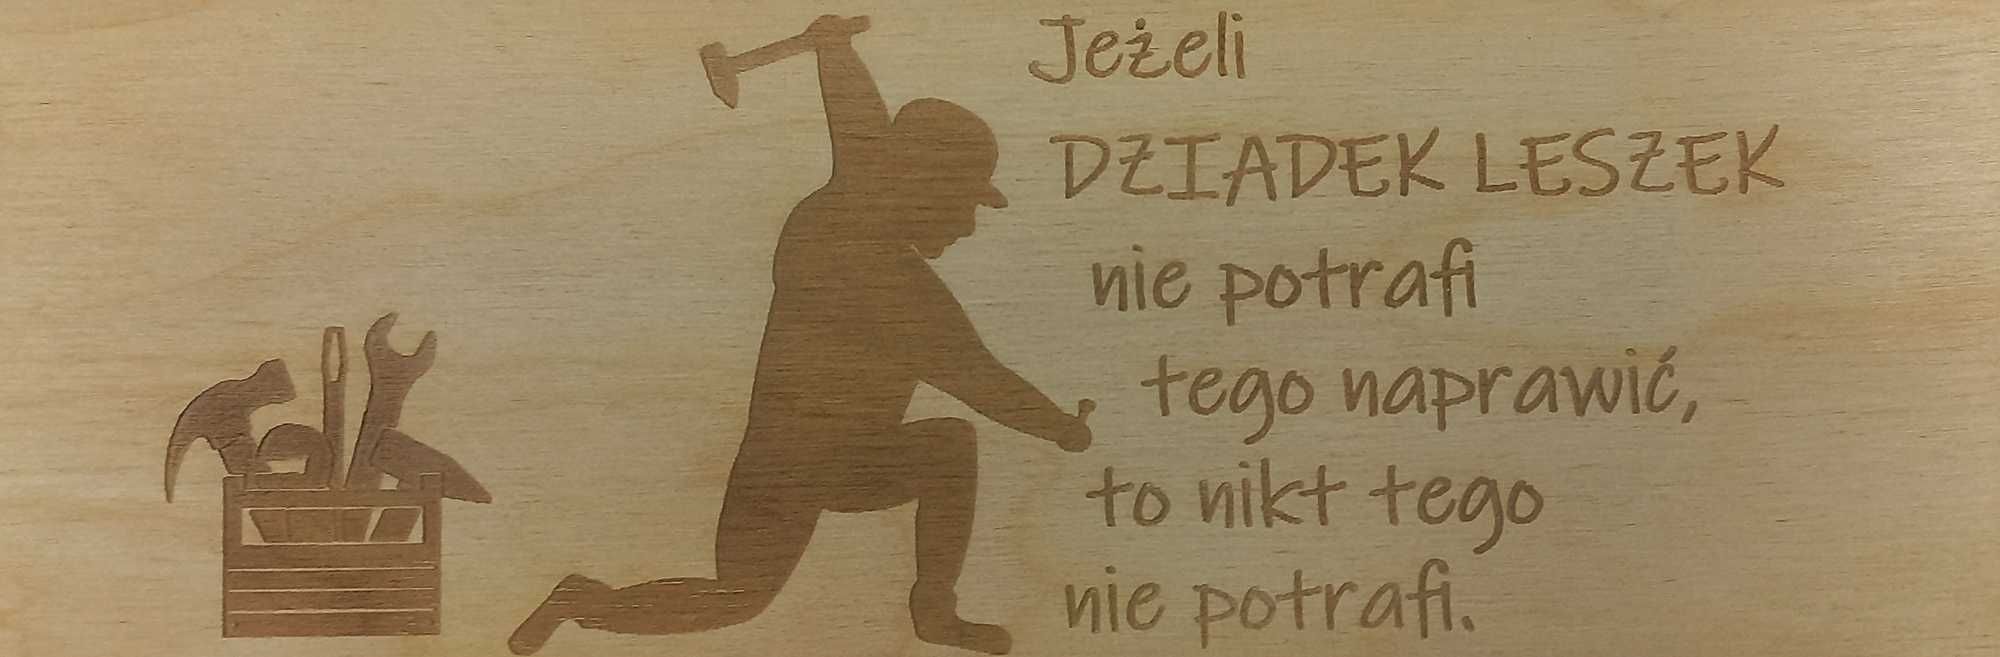 Jeżeli
DZIADEK LESZEK
nie potrafi
tego naprawić,
to nikt tego
nie potrafi.